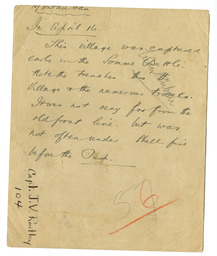 Montauban
In April 16.
This village was captured
early in the Somme Battle.
Note the trenches thro' the
village & the numerous tracks.
It was not very far from the
old front line but was
not often under shell fire
before the Push.
Capt. J. V.
104